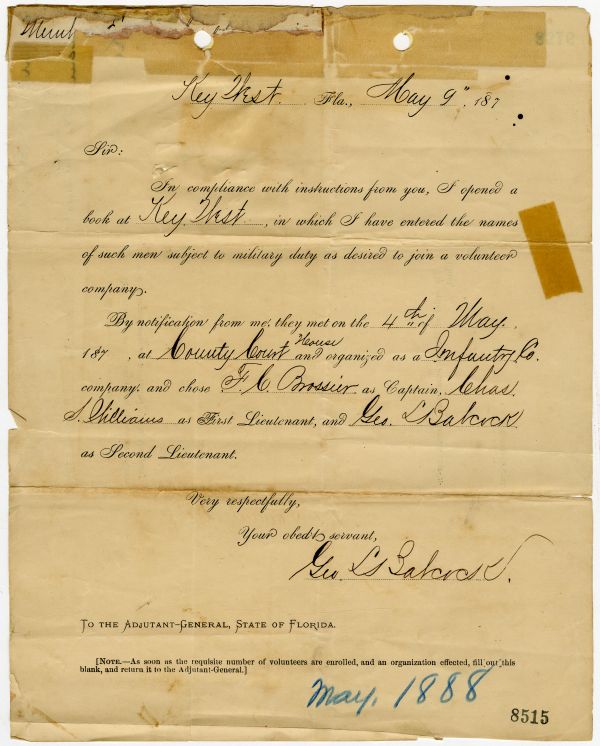 Key West. Fla., May 9" 187
Sir:
In compliance with instructions from you, I opened a
book at Key West, in which I have entered the names
of such men subject to military duty as desired to join a volunteer
company.
By notification from me, they met on the 4th of May.
187 , at County Court House and organized as a Infantry Co.
company, and chose F. C. Brossier as Captain, Chas.
S. Williams as First Lieutenant, and Geo. L Babcock
as Second Lieutenant.
Very respectfully,
Your obed't servant,
Geo. L Babcock.
To the Adjutant-General, State of Florida.
[Note.—As soon as the requisite number of volunteers are enrolled, and an organization effected, fill out this
blank, and return it to the Adjutant-General.]
May, 1888
8515